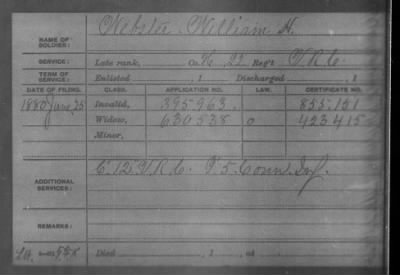 NAME OF SOLDIER: Webster, William H.
SERVICE: Late rank, Co. K, 22 Reg't V.R.C.
TERM OF SERVICE: Enlisted , 1 Discharged , 1
DATE OF FILING. CLASS. APPLICATION NO. LAW. CERTIFICATE NO.
1880 June 25 Invalid, 395963. 855.151
Widow, 630538 O 423415
Minor,
ADDITIONAL SERVICES: C. 12" V.R.C. F. 5 Conn. Inf.
REMARKS:
Died , 1 , at